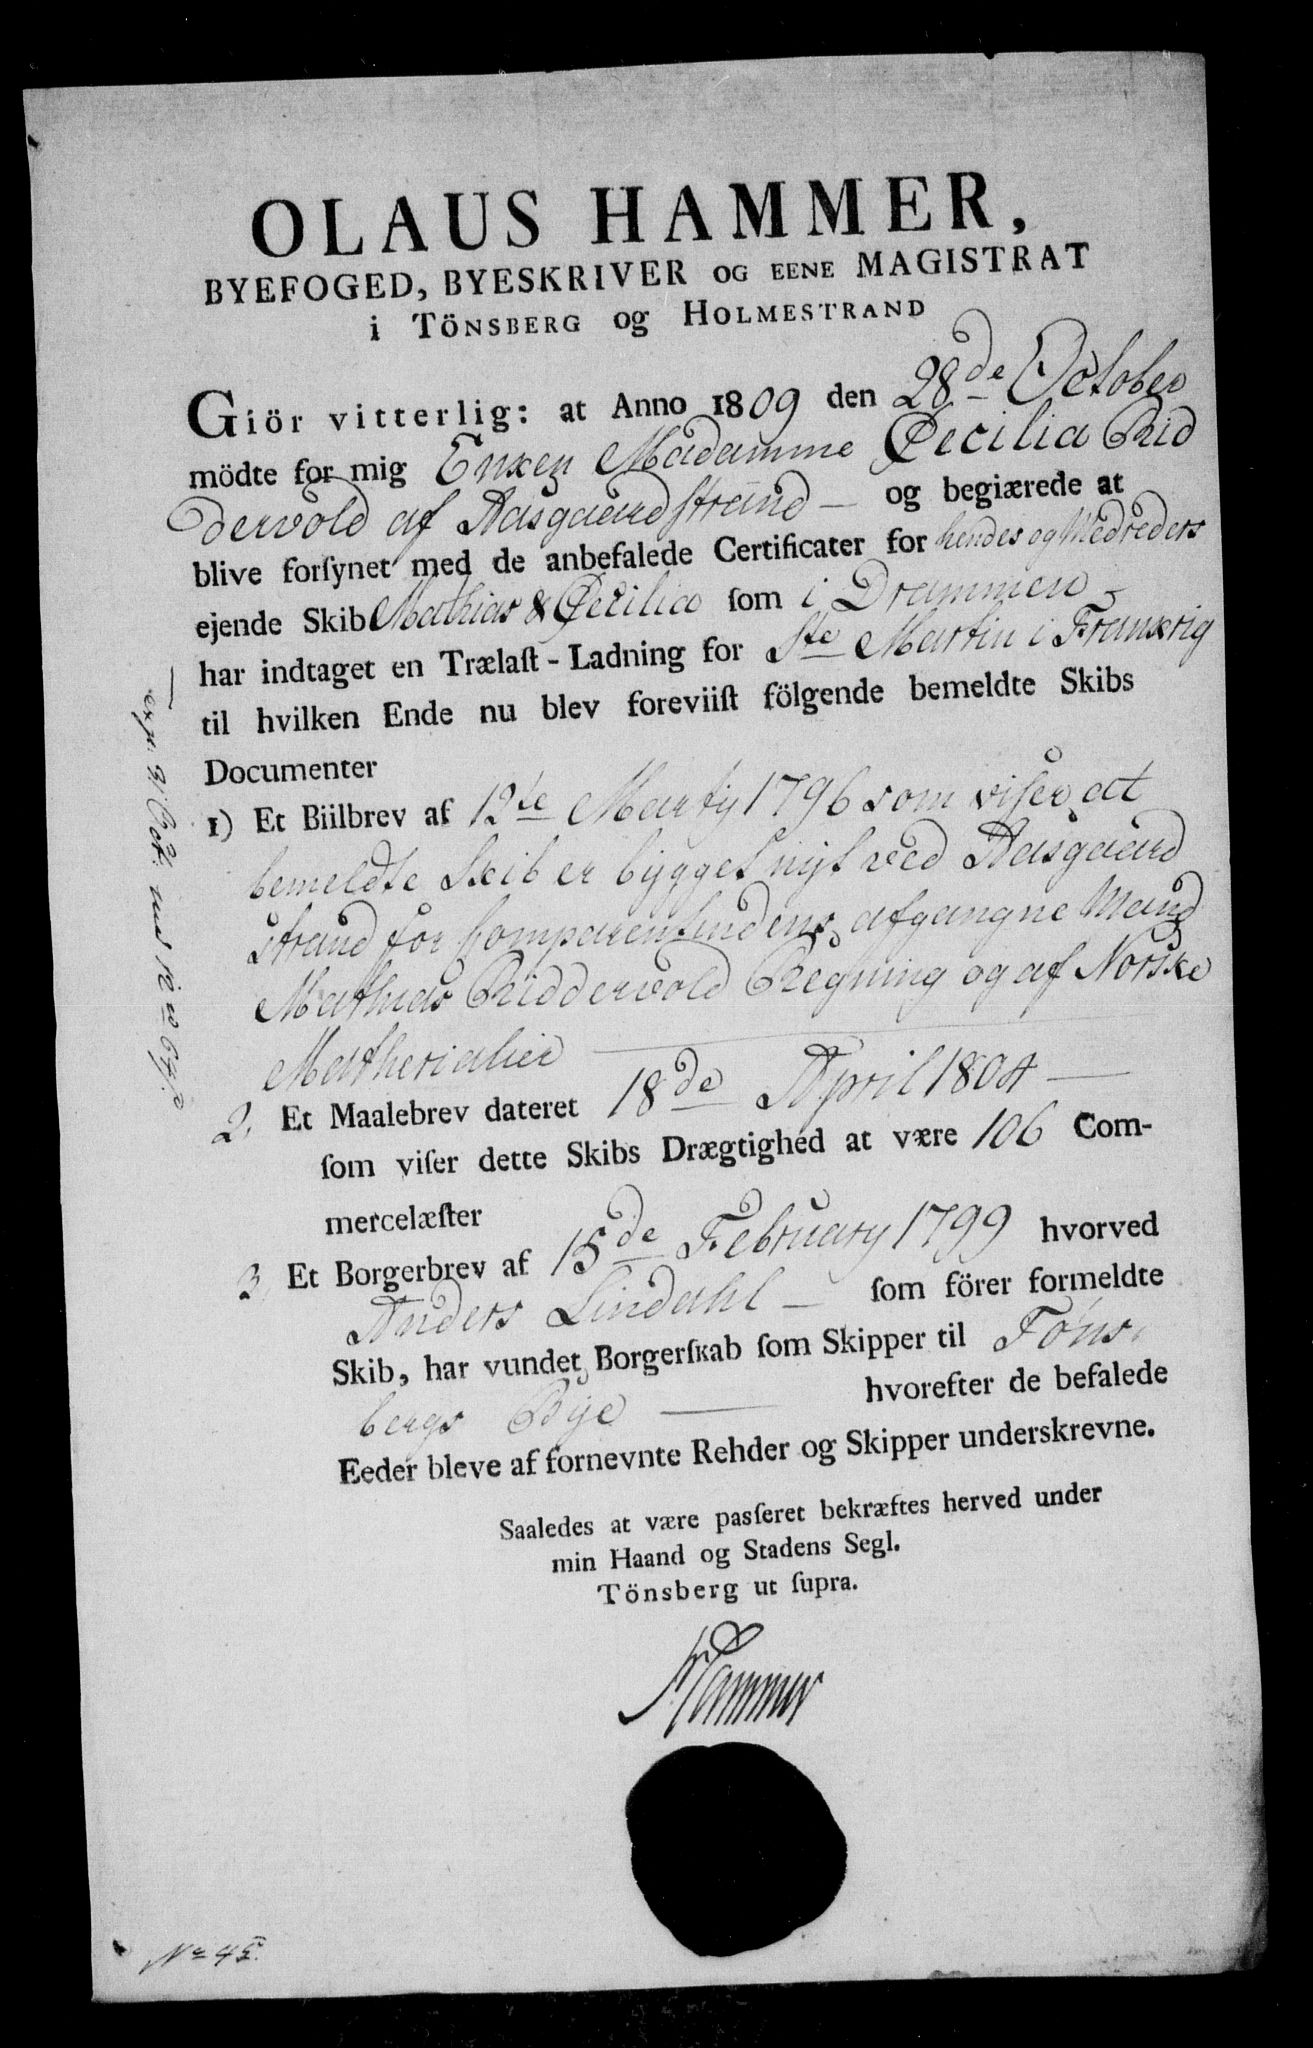 OLAUS HAMMER,
BYEFOGED, BYESKRIVER OG EENE MAGISTRAT
i TÖNSBERG og HOLMESTRAND
Giör vitterlig: at Anno 1809 den 28de October
mödte for mig Enken Madamme Cecilia Rid
dervold af Aasgaardstrand — og begiærede at
blive forſynet med de anbefalede Certificater for hendes og Medreders
ejende Skib Mathias & Cecilia ſom i Drammen
har indtaget en Trælaſt-Ladning for Ste Martin i Frankrig
til hvilken Ende nu blev foreviiſt fölgende bemeldte Skibs
Documenter
1) Et Biilbrev af 12te Marty 1796 som viſer at
bemeldte Skib er bygget nyt ved Aasgaard
strand for Comparentindens afgangne Mand
Mathias Riddervold Regning og af Norske
Matherialier
2, Et Maalebrev dateret 18de April 1804 —
ſom viſer dette Skibs Drægtighed at være 106 Com-
mercelæſter
3, Et Borgerbrev af 15de February 1799 hvorved
Anders Lindahl — ſom förer formeldte
Skib, har vundet Borgerſkab ſom Skipper til Töns,
bergs Bye — hvorefter de befalede
Eeder bleve af fornevnte Rehder og Skipper underskrevne.
Saaledes at være pasſeret bekræftes herved under
min Haand og Stadens Segl.
Tönsberg ut ſupra.
Hammer
No 45.